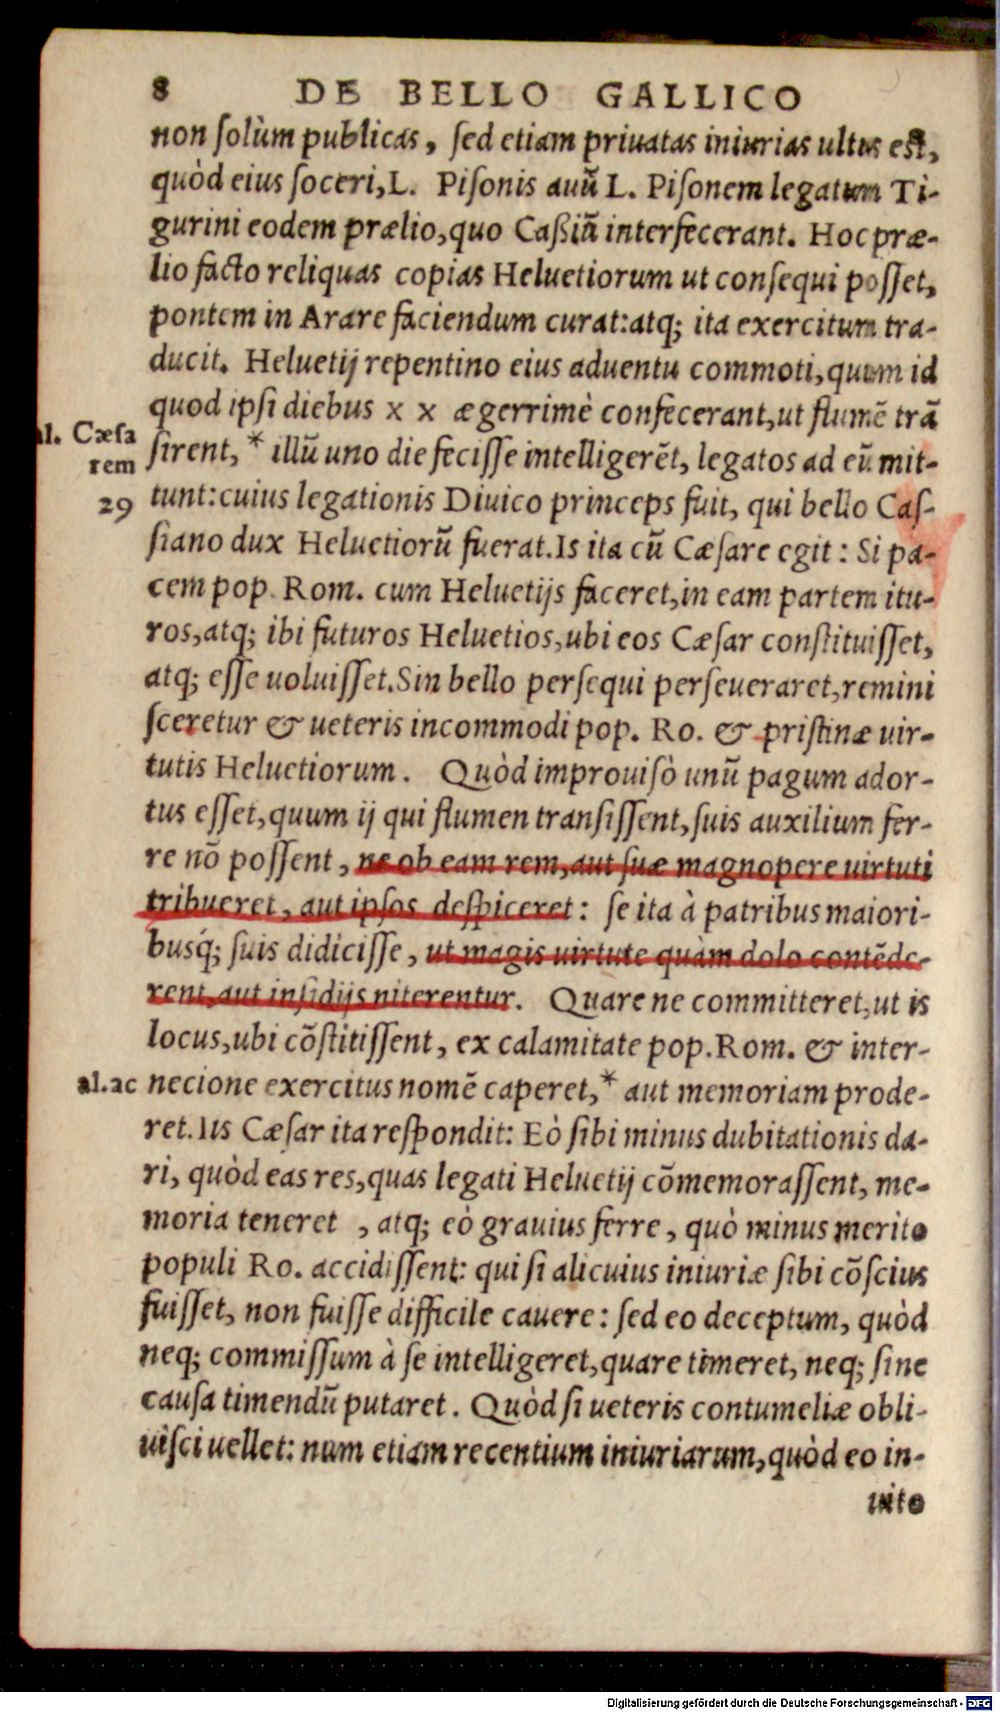 8 DE BELLO GALLICO
non ſolùm publicas, ſed etiam priuatas iniurias ultus eſt,
quòd eius ſoceri, L. Piſonis auũ L. Piſonem legatum Ti-
gurini eodem prælio, quo Caßiã interfecerant. Hoc præ-
lio facto reliquas copias Heluetiorum ut conſequi poſſet,
pontem in Arare faciendum curat: atq; ita exercitum tra-
ducit. Heluetij repentino eius aduentu commoti, quum id
quod ipſi diebus x x ægerrimè confecerant, ut flumẽ trã
al. Cæſa
rem
ſirent, * illũ uno die feciſſe intelligerẽt, legatos ad eũ mit-
29
tunt: cuius legationis Diuico princeps fuit, qui bello Caſ-
ſiano dux Heluetiorũ fuerat. Is ita cũ Cæſare egit: Si pa-
cem pop. Rom. cum Heluetijs faceret, in eam partem itu-
ros, atq; ibi futuros Heluetios, ubi eos Cæſar conſtituiſſet,
atq; eſſe uoluiſſet. Sin bello perſequi perſeueraret, remini
ſceretur & ueteris incommodi pop. Ro. & priſtinæ uir-
tutis Heluetiorum. Quòd improuiſò unũ pagum ador-
tus eſſet, quum ij qui flumen tranſiſſent, ſuis auxilium fer-
re nõ poſſent, ne ob eam rem, aut ſuæ magnopere uirtuti
tribueret, aut ipſos deſpiceret: ſe ita à patribus maiori-
busq́; ſuis didiciſſe, ut magis uirtute quàm dolo contẽde-
rent, aut inſidijs niterentur. Quare ne committeret, ut is
locus, ubi cõſtitiſſent, ex calamitate pop. Rom. & inter-
al. ac
necione exercitus nomẽ caperet, * aut memoriam prode-
ret. Iis Cæſar ita reſpondit: Eò ſibi minus dubitationis da-
ri, quòd eas res, quas legati Heluetij cõmemoraſſent, me-
moria teneret , atq; eò grauius ferre, quò minus merito
populi Ro. accidiſſent: qui ſi alicuius iniuriæ ſibi cõſcius
fuiſſet, non fuiſſe difficile cauere: ſed eo deceptum, quòd
neq; commiſſum à ſe intelligeret, quare timeret, neq; ſine
cauſa timendũ putaret. Quòd ſi ueteris contumeliæ obli-
uiſci uellet: num etiam recentium iniuriarum, quòd eo in-
uito
Digitalisierung gefördert durch die Deutsche Forschungsgemeinschaft - DFG